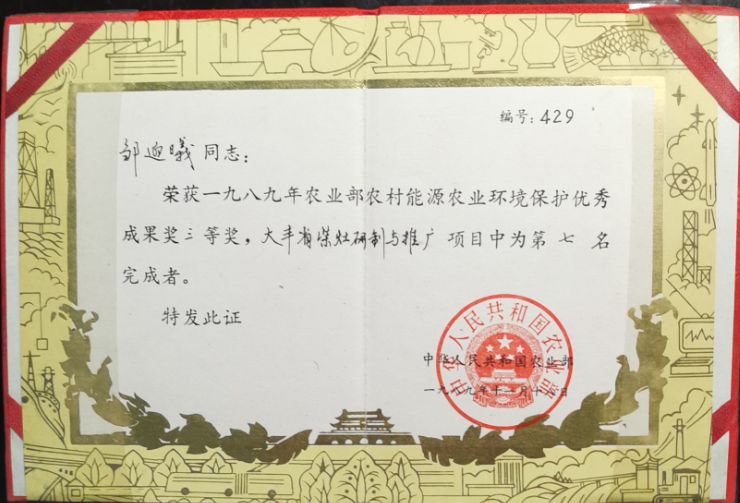 编号：429
邹迎曦 同志：
荣获一九八九年农业部农村能源农业环境保护优秀
成果奖三等奖，大丰省柴灶研制与推广 项目中为第 七 名
完成者。
特发此证
中华人民共和国农业部
中华人民共和国农业部
一九八九年十一月十一日